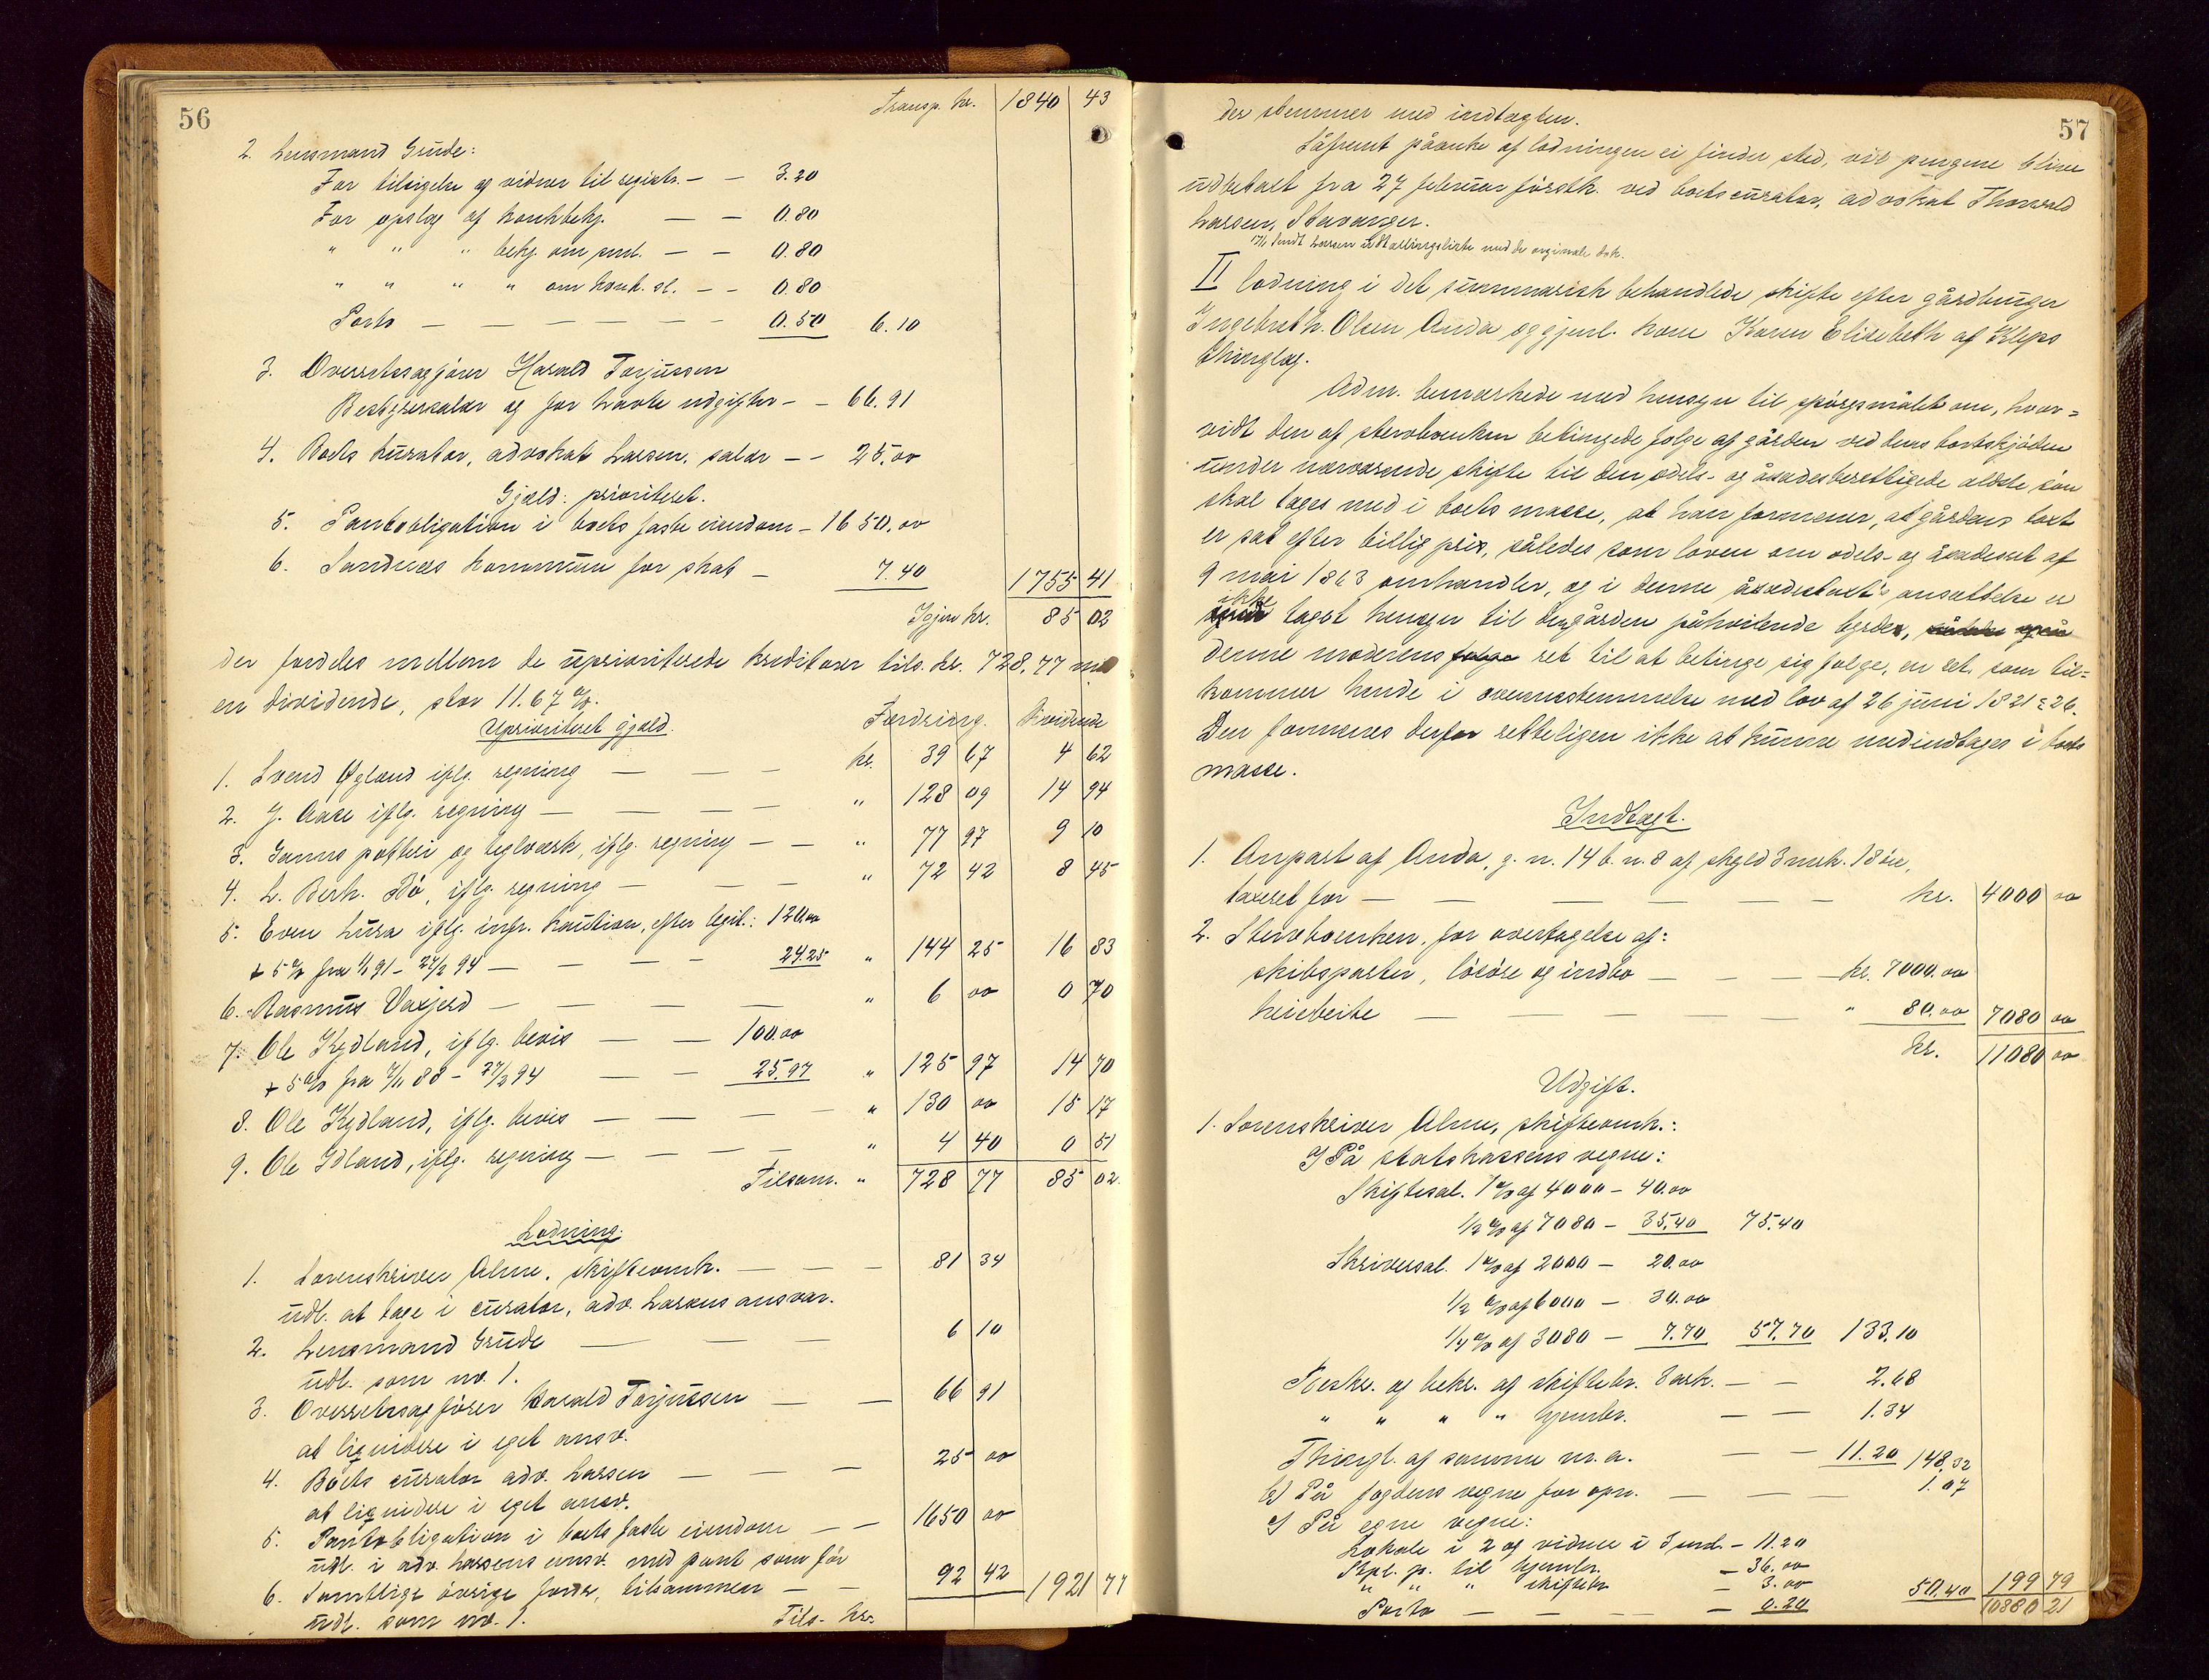 56
Transp. kr. 1840 43
2. Lensmand Grude:
For tilsigelse og vidner til registr. — — 3.20
For opslag af konkbekj. — — 0.80
" " " bekj. om saml. — — 0.80
" " " " om konk. sl. — — 0.80
Porto — — — — — — 0.50 6.10
3. Overretssagfører Harald Torjussen
Bestyrersalær og for havte udgifter — — 66.91
4. Boets kurator, advokat Larsen, salær — — 25.00
Gjæld: prioriteret.
5. Pantobligation i boets faste eiendom — 1650.00
6. Sandnes kommune for skat — 7.40 1755 41
Igjen kr. 85 02
der fordeles mellem de uprioriterede kreditorer tils. kr. 728,77 med
en dividende, stor 11.67 %.
Uprioriteret gjæld. Fordring. Dividende
1. Svend Øgland iflg. regning — — — kr. 39 67 4 62
2. J. Aase iflg. regning — — — — " 128 09 14 94
3. Ganns potteri og teglværk, iflg. regning — — " 77 97 9 10
4. L. Berh. Bø, iflg. regning — — — " 72 42 8 45
5. Even Lura iflg. infr. kaution, efter legit.: 120.00
+ 5 % fra 1/1 91 - 27/2 94 — — — 24.25 " 144 25 16 83
6. Rasmus Vaxjerd — — — — " 6 00 0 70
7. Ole Kydland, iflg. bevis — — 100.00
+ 5 % fra 7/11 88 - 27/2 94 — — 25.97 " 125 97 14 70
8. Ole Kydland, iflg. bevis — — — — " 130 00 15 17
9. Ole Idland, iflg. regning — — — — " 4 40 0 51
Tilsam. " 728 77 85 02
Lodning.
1. Sorenskriver Alme, skifteomk. — — — 81 34
udl. at tage i curator, adv. Larsens ansvar.
2. Lensmand Grude — — — 6 10
udl. som no. 1.
3. Overretssagfører Harald Torjussen — — 66 91
at liqvidere i eget ansv.
4. Boets curator adv. Larsen — — — 25 00
at liqvidere i eget ansv.
5. Pantobligation i boets faste eiendom — — 1650 00
udl. i adv. Larsens ansv. med pant som før
6. Samtlige øvrige fordr. tilsammen — — 92 42 1921 77
udl. som no. 1. Tils. kr.
57
der stemmer med indtægten.
Såfremt påanke af lodningen ei finder sted, vil pengene blive
udbetalt fra 27 februar førstk. ved boets curator, advokat Thorvald
Larsen, Stavanger.
sendt Larsen udtællingsliste med de originale dok.
II lodning i det summarisk behandlede skifte efter gårdbruger
Ingebreth. Olsen Anda og gjenl. kone Karen Elisebeth af Klepp
thinglag.
Adm. bemærkede med hensyn til spørgsmålet om, hvor=
vidt den af stervboenken betingede følge af gården ved dens bortskjøden
under nærværende skifte til den odels- og åsædesberettigede ældste søn
skal tages med i boets masse, at han formener, at gårdens taxt
er sat efter billig pris, således som loven om odels- og åsædesret af
9 mai 1863 omhandler, og i denne åsædestaxts ansættelse er
ikke tagst hensyn til den gården påhvilende byrde,
denne moderens ret til at betinge sig følge, en ret, som til=
kommer hende i overensstemmelse med lov af 26 juni 1821 § 26.
Den formenes derfor retteligen ikke at kunne medindtages i boets
masse.
Indtægt.
1. Anpart af Anda, g. n. 14 b. n. 8 af skyld 3 mrk. 18 øre,
taxeret for — — — — — — kr. 4000 00
2. Stervboenken, for overtagelse af:
skibsparter, løsøre og indbo — — — — kr. 7000.00
heiebeite — — — — — " 80.00 7080 00
kr. 11080 00
Udgift.
1. Sorenskriver Alme, skifteomk.:
a) På statskassens vegne:
Skiftesal. 1 % af 4000 — 40.00
1/2 % af 7080 — 35.40 75.40
Skriversal. 1 % af 2000 — 20.00
1/2 % af 6000 — 30.00
1/4 % af 3080 — 7.70 57.70 133.10
Beskr. og bekr. af skiftebr. 3 ark. — — 2.68
" " " " hjemlsbr. — — 1.34
Thingl. af samme m. a. — — 11.20 148.32
b) På fogdens vegne for opn. — — — 1.07
c) På egne vegne:
Lokale i 2 og vidner i 3 saml. — 11.20
Stpl. p. til hjemlsbr. — 36.00
" " " skiftebr. — 3.00
Porto — — — — — 0.20 50.40 199 79
10880 21